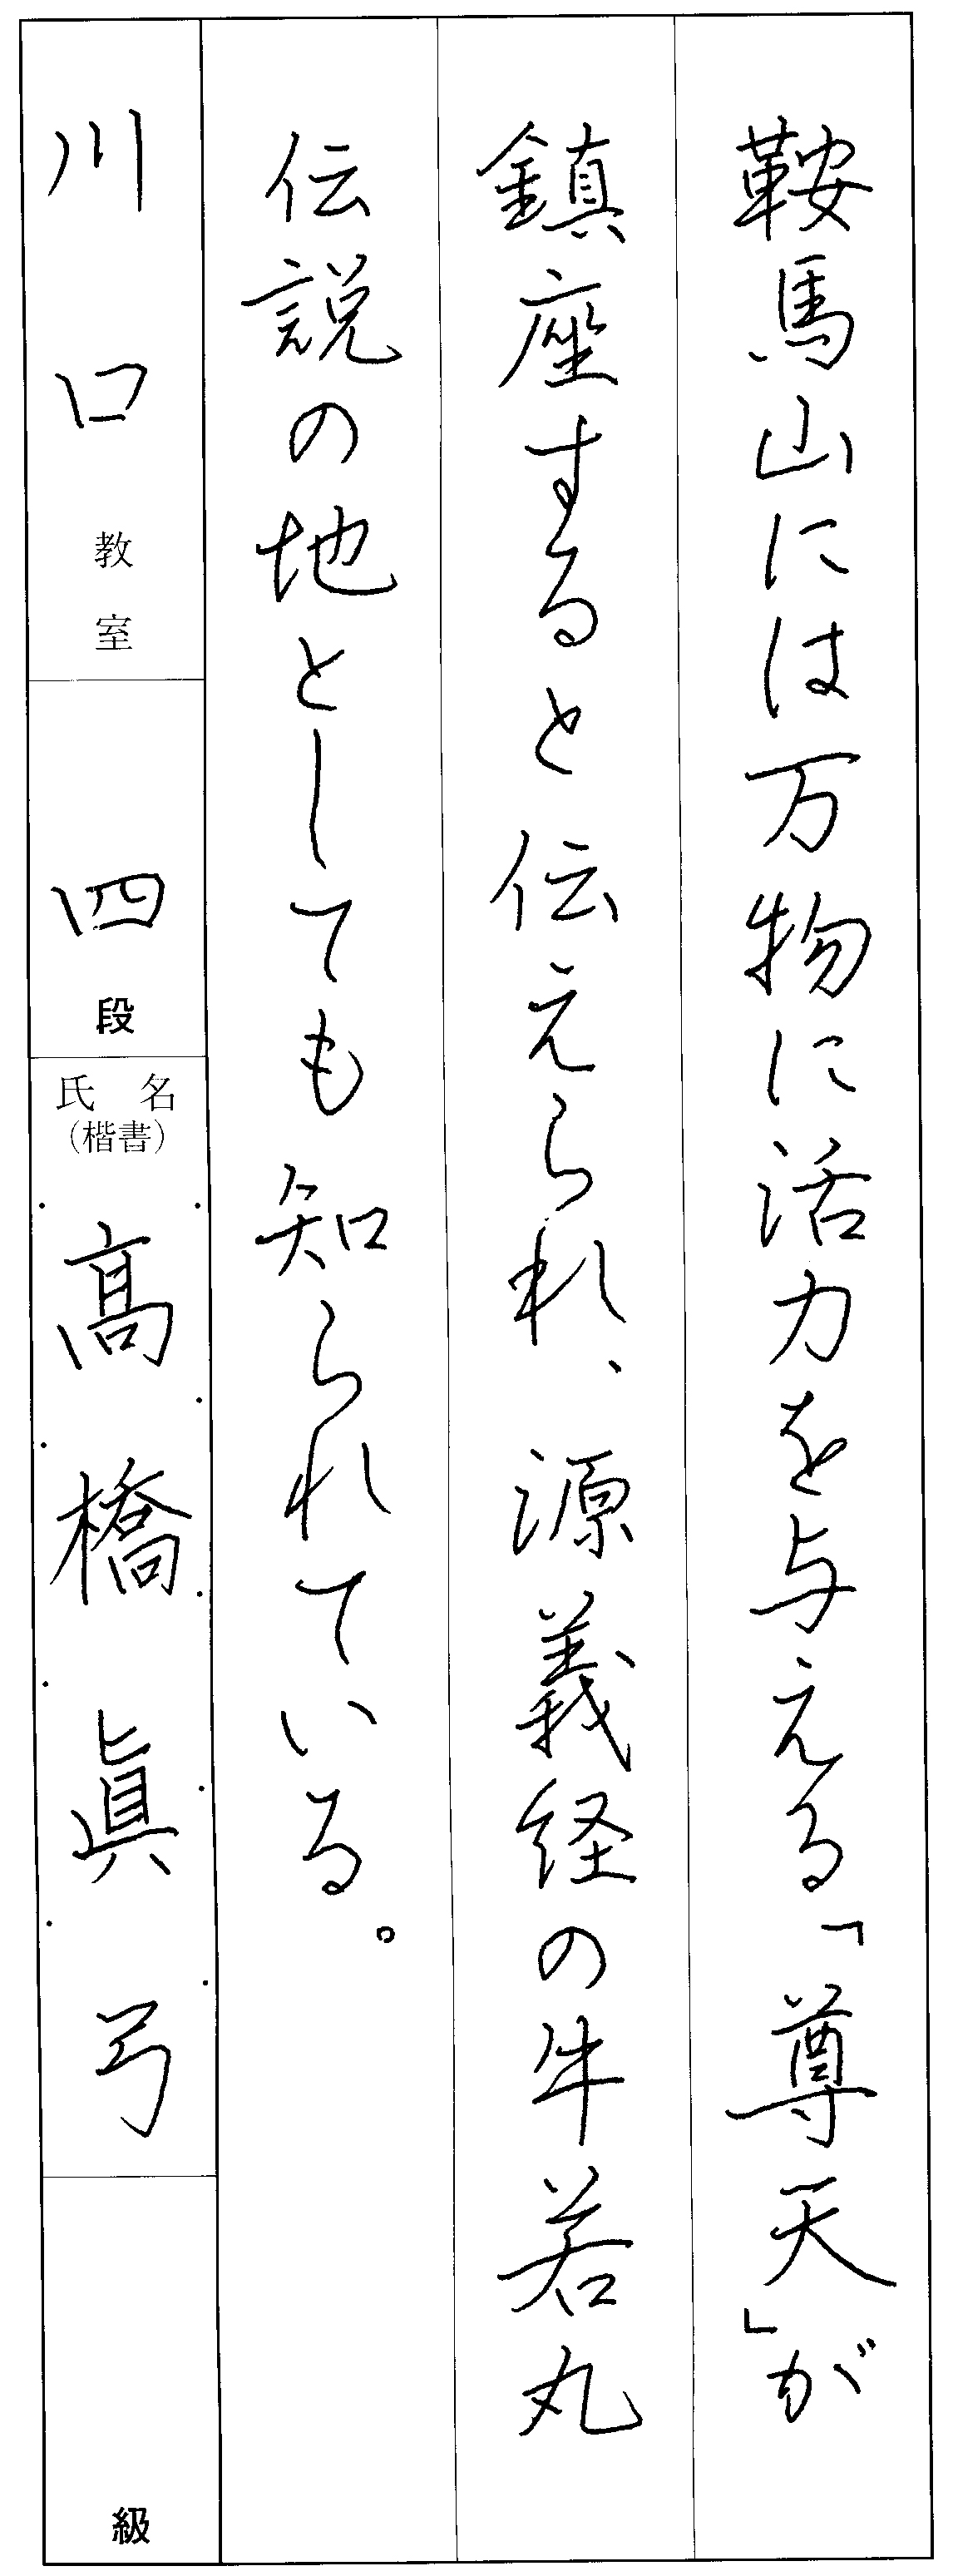 鞍馬山には万物に活力を与える「尊天」が
鎮座すると伝えられ、源義経の牛若丸
伝説の地としても知られている。
川口教室
四段
氏名
（楷書）
髙橋眞弓
級